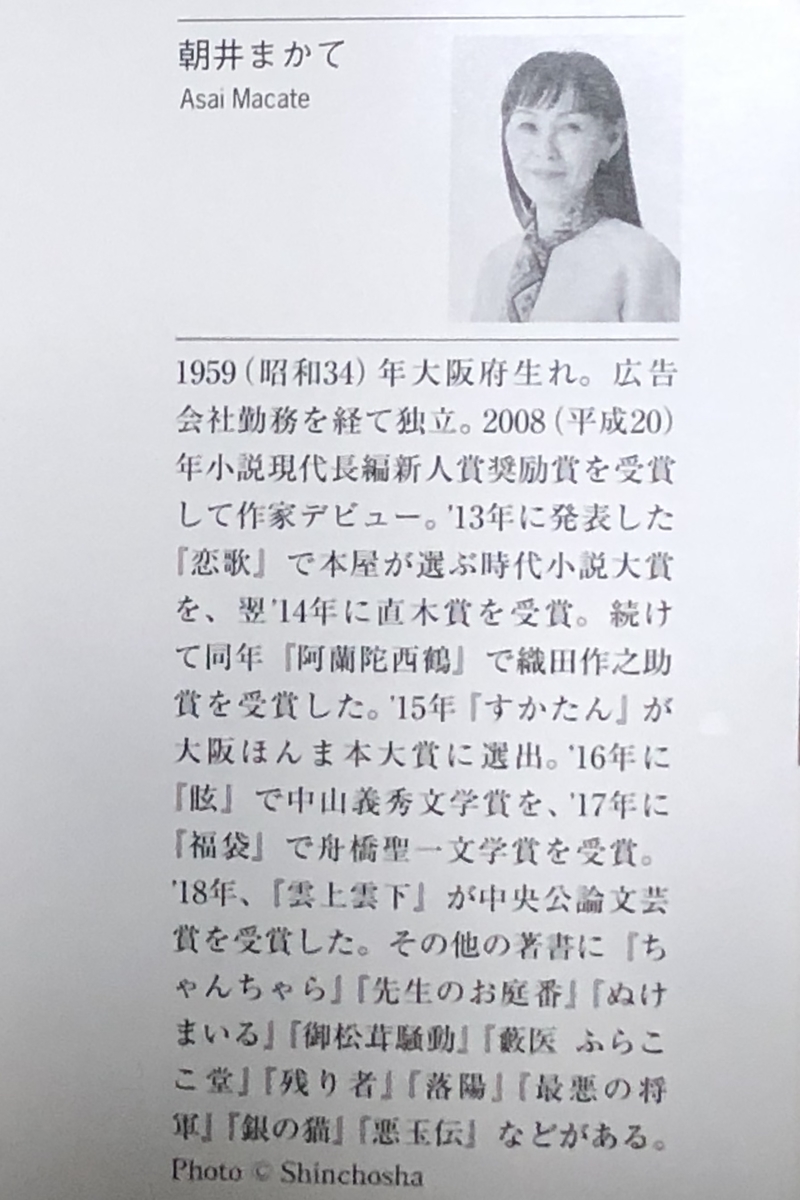 朝井まかて
Asai Macate
1959（昭和34）年大阪府生れ。広告
会社勤務を経て独立。2008（平成20）
年小説現代長編新人賞奨励賞を受賞
して作家デビュー。'13年に発表した
『恋歌』で本屋が選ぶ時代小説大賞
を、翌'14年に直木賞を受賞。続け
て同年『阿蘭陀西鶴』で織田作之助
賞を受賞した。'15年『すかたん』が
大阪ほんま本大賞に選出。'16年に
『眩』で中山義秀文学賞を、'17年に
『福袋』で舟橋聖一文学賞を受賞。
'18年、『雲上雲下』が中央公論文芸
賞を受賞した。その他の著書に『ち
ゃんちゃら』『先生のお庭番』『ぬけ
まいる』『御松茸騒動』『藪医 ふらこ
こ堂』『残り者』『落陽』『最悪の将
軍』『銀の猫』『悪玉伝』などがある。
Photo © Shinchosha